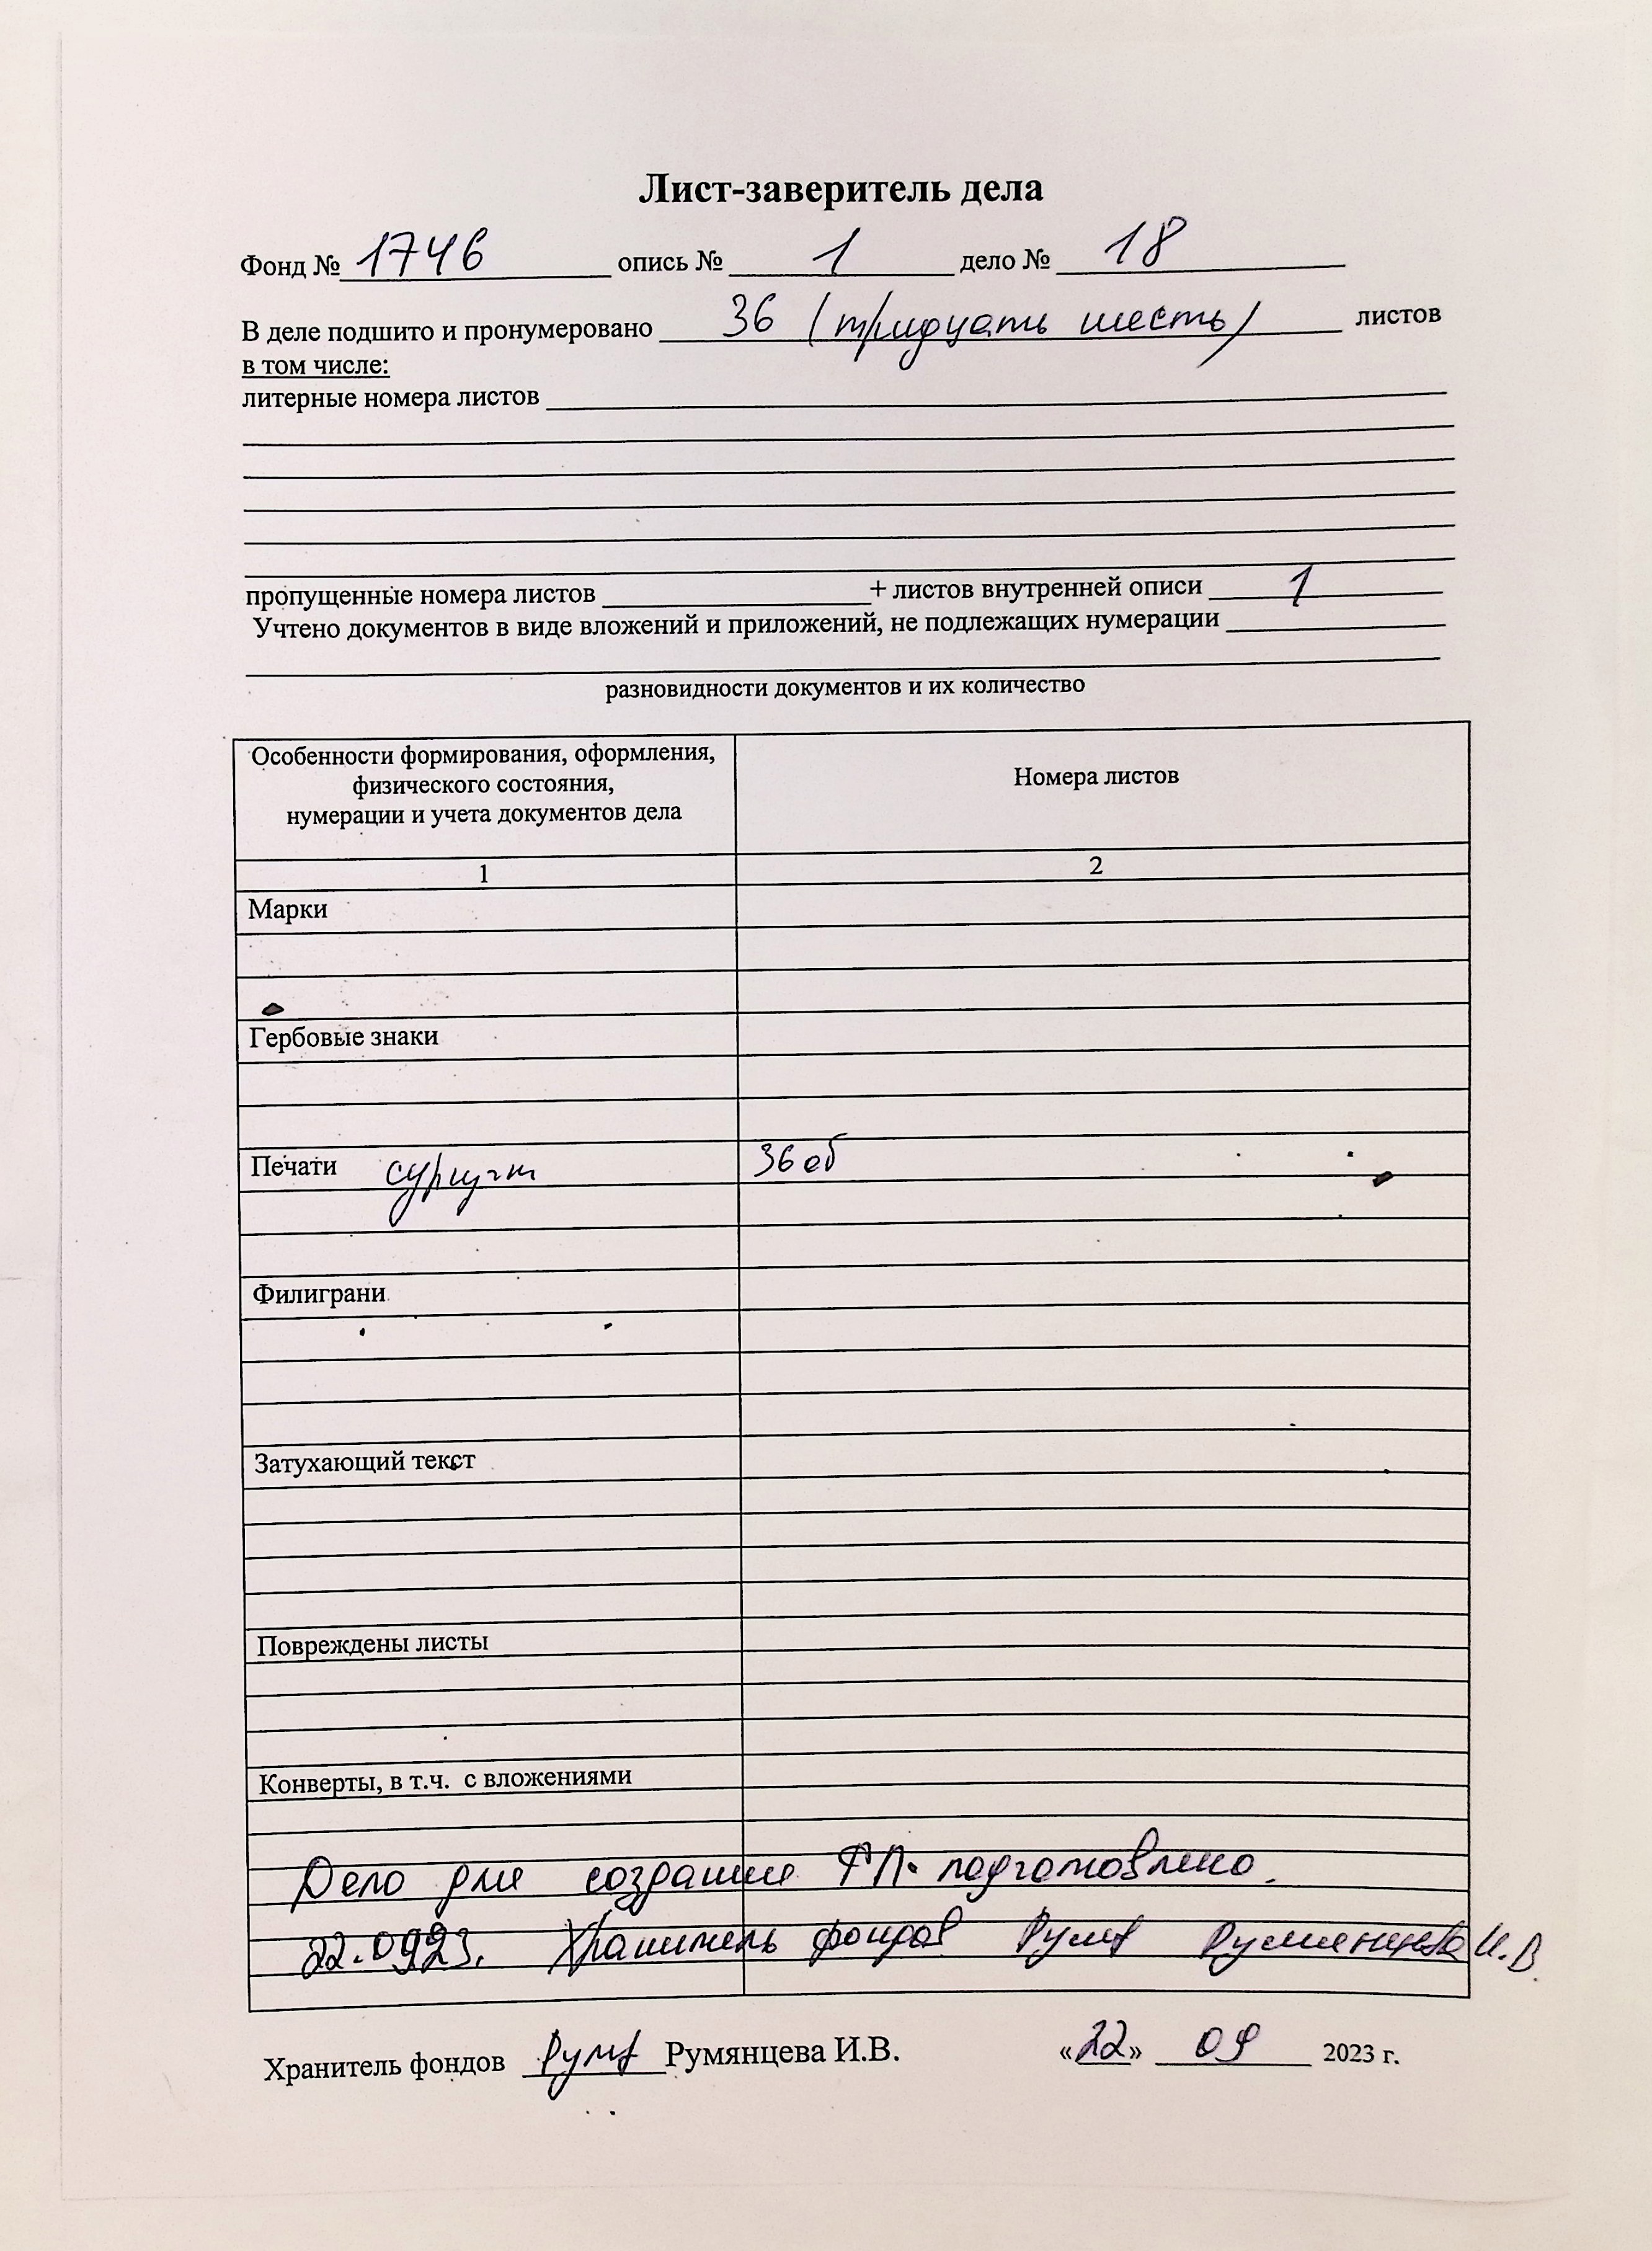 Лист-заверитель дела
Фонд № 1746 опись № 1 дело № 18
В деле подшито и пронумеровано 36 (тридцать шесть) листов
в том числе:
литерные номера листов
пропущенные номера листов + листов внутренней описи 1
Учтено документов в виде вложений и приложений, не подлежащих нумерации
разновидности документов и их количество
Особенности формирования, оформления,
физического состояния,
нумерации и учета документов дела
Номера листов
1 2
Марки
Гербовые знаки
Печати сургучн 36 об
Филиграни
Затухающий текст
Повреждены листы
Конверты, в т.ч. с вложениями
Дело для создания ФП подготовлено.
22.0923. Хранитель фондов Румянцева И.В.
Хранитель фондов Румянцева И.В. «22» 09 2023 г.